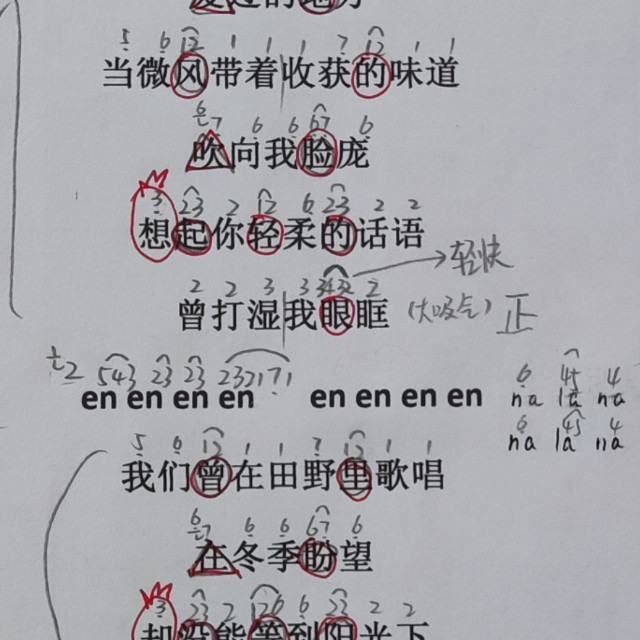 5 6 12 1 1 1 7 12 1 1
当微风带着收获的味道
6 7 6 6 67 6
吹向我脸庞
3 23 2 12 6 23 2 2
想起你轻柔的话语
轻快
2 2 3 3 3432 2
曾打湿我眼眶 (大吸气) 正
543 23 23 232171 6 45 4
en en en en en en en en na la na
6 45 4
na la na
5 6 12 1 1 7 12 1 1
我们曾在田野里歌唱
6 7 6 6 67 6
在冬季盼望
3 23 2 126 6 23 2 2
却没能等到阳光下